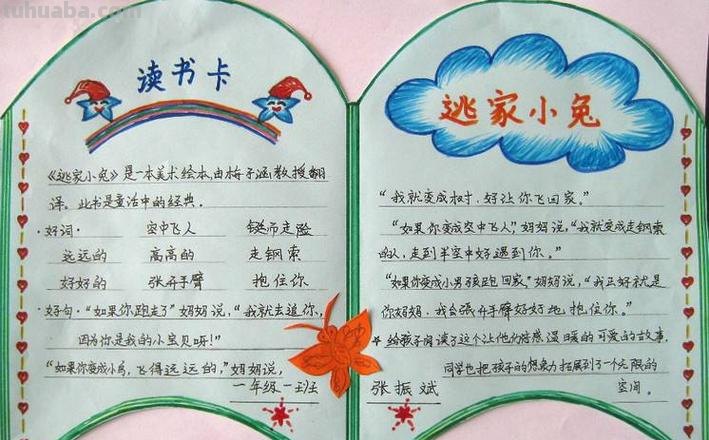 tuhuaba.com
读书卡
《逃家小兔》是一本美术绘本,由梅子涵教授翻
译。此书是童话中的经典.
·好词: 空中飞人 铤而走险
远远的 高高的 走钢索
好好的 张开手臂 抱住你
·好句·“如果你跑走了”妈妈说,“我就去追你,
因为你是我的小宝贝呀!”
“如果你变成小鸟,飞得远远的,”妈妈说,
一年级一班
逃家小兔
“我就变成树,好让你飞回家。”
“如果你变成空中飞人,”妈妈说,“我就变成走钢索
的人,走到半空中好遇到你。”
“如果你变成小男孩跑回家,”妈妈说,“我正好就是
你妈妈,我会张开手臂好好地抱住你。”
给孩子阅读了这个让他们倍感温暖的可爱的故事.
同学也把孩子的想象力拓展到了一个无限的
空间.
张振斌